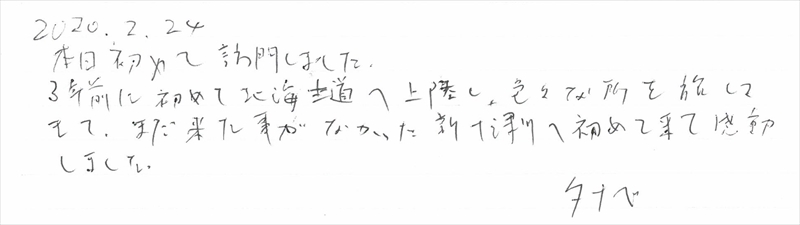 2020.2.24
本日初めて訪問しました。
3年前に初めて北海道へ上陸し、色々な所を旅して
きて、まだ来た事がなかった新十津川へ初めて来て感動
しました。
タナベ